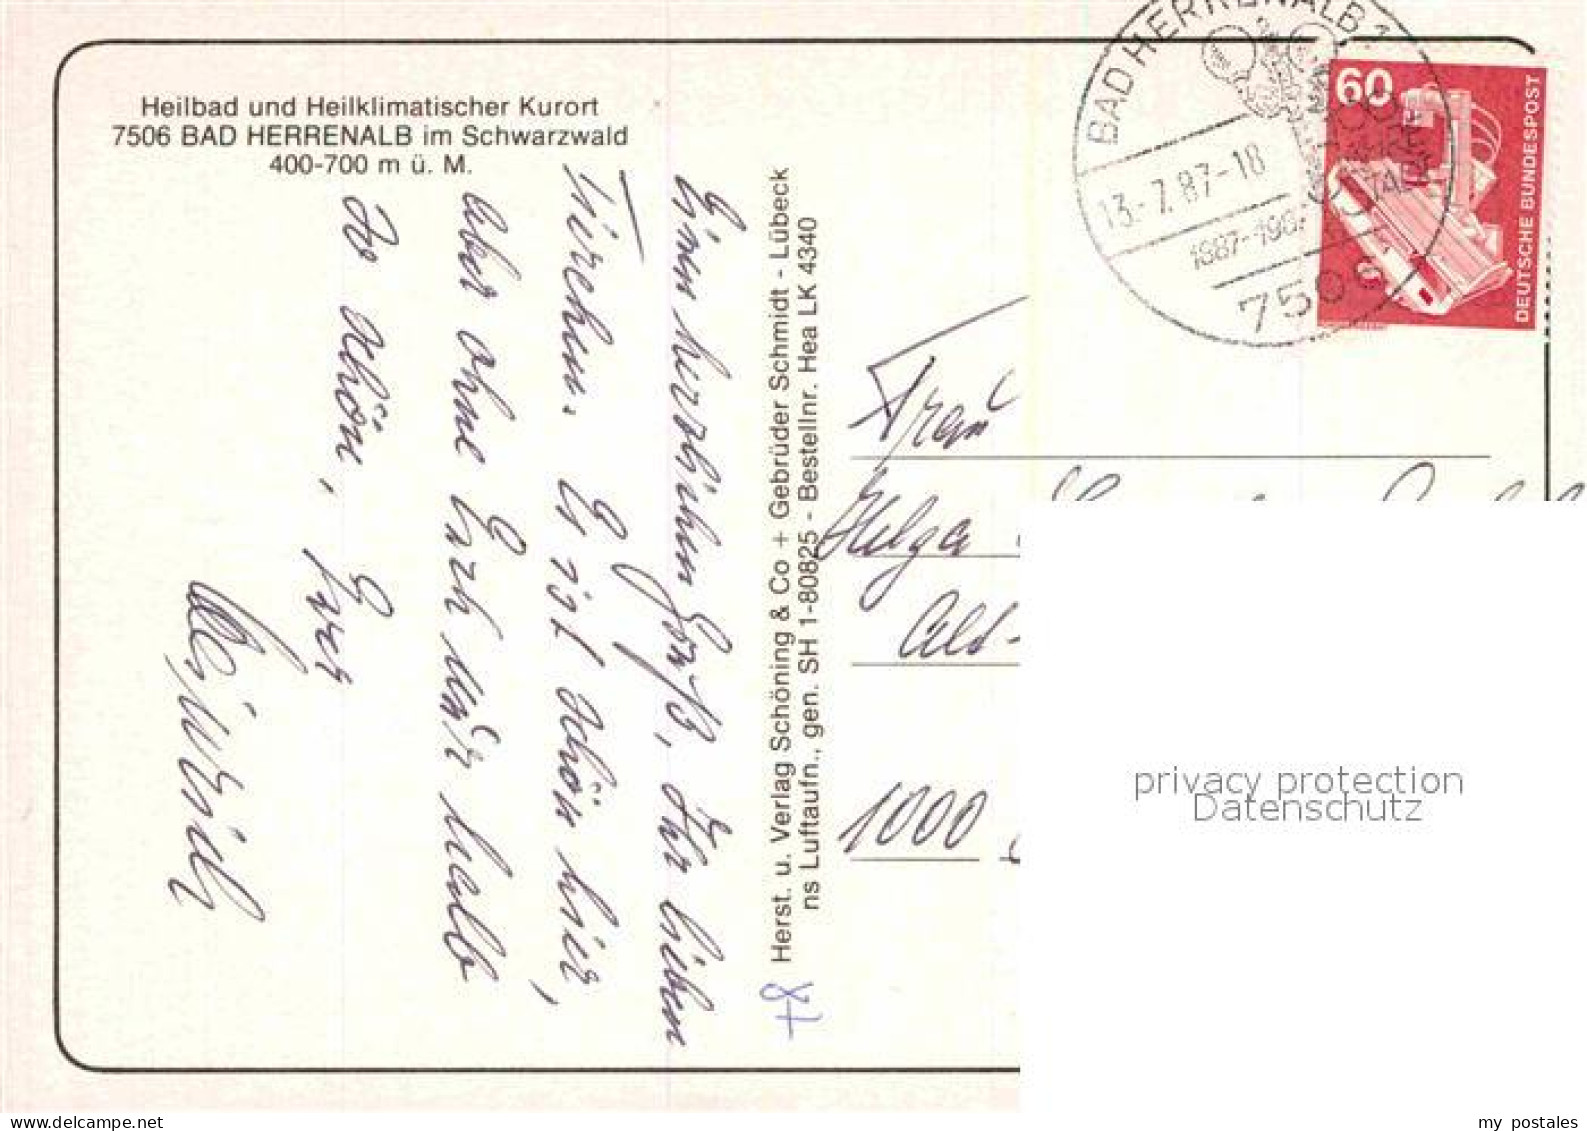 Heilbad und Heilklimatischer Kurort
7506 BAD HERRENALB im Schwarzwald
400-700 m ü. M.
Einen herzlichen Gruß, Ihr lieben
Es ist schön hier,
aber ohne Euch nur halb
so schön, Euer
Herst. u. Verlag Schöning & Co + Gebrüder Schmidt - Lübeck
ns Luftaufn., gen. SH 1-80825 - Bestellnr. Hea LK 4340
78
BAD HERRENALB 1
13.-7.87-18
7506
60
DEUTSCHE BUNDESPOST
Frau
Helga
Alt-
1000
privacy protection
Datenschutz
www.delcampe.net
my postales